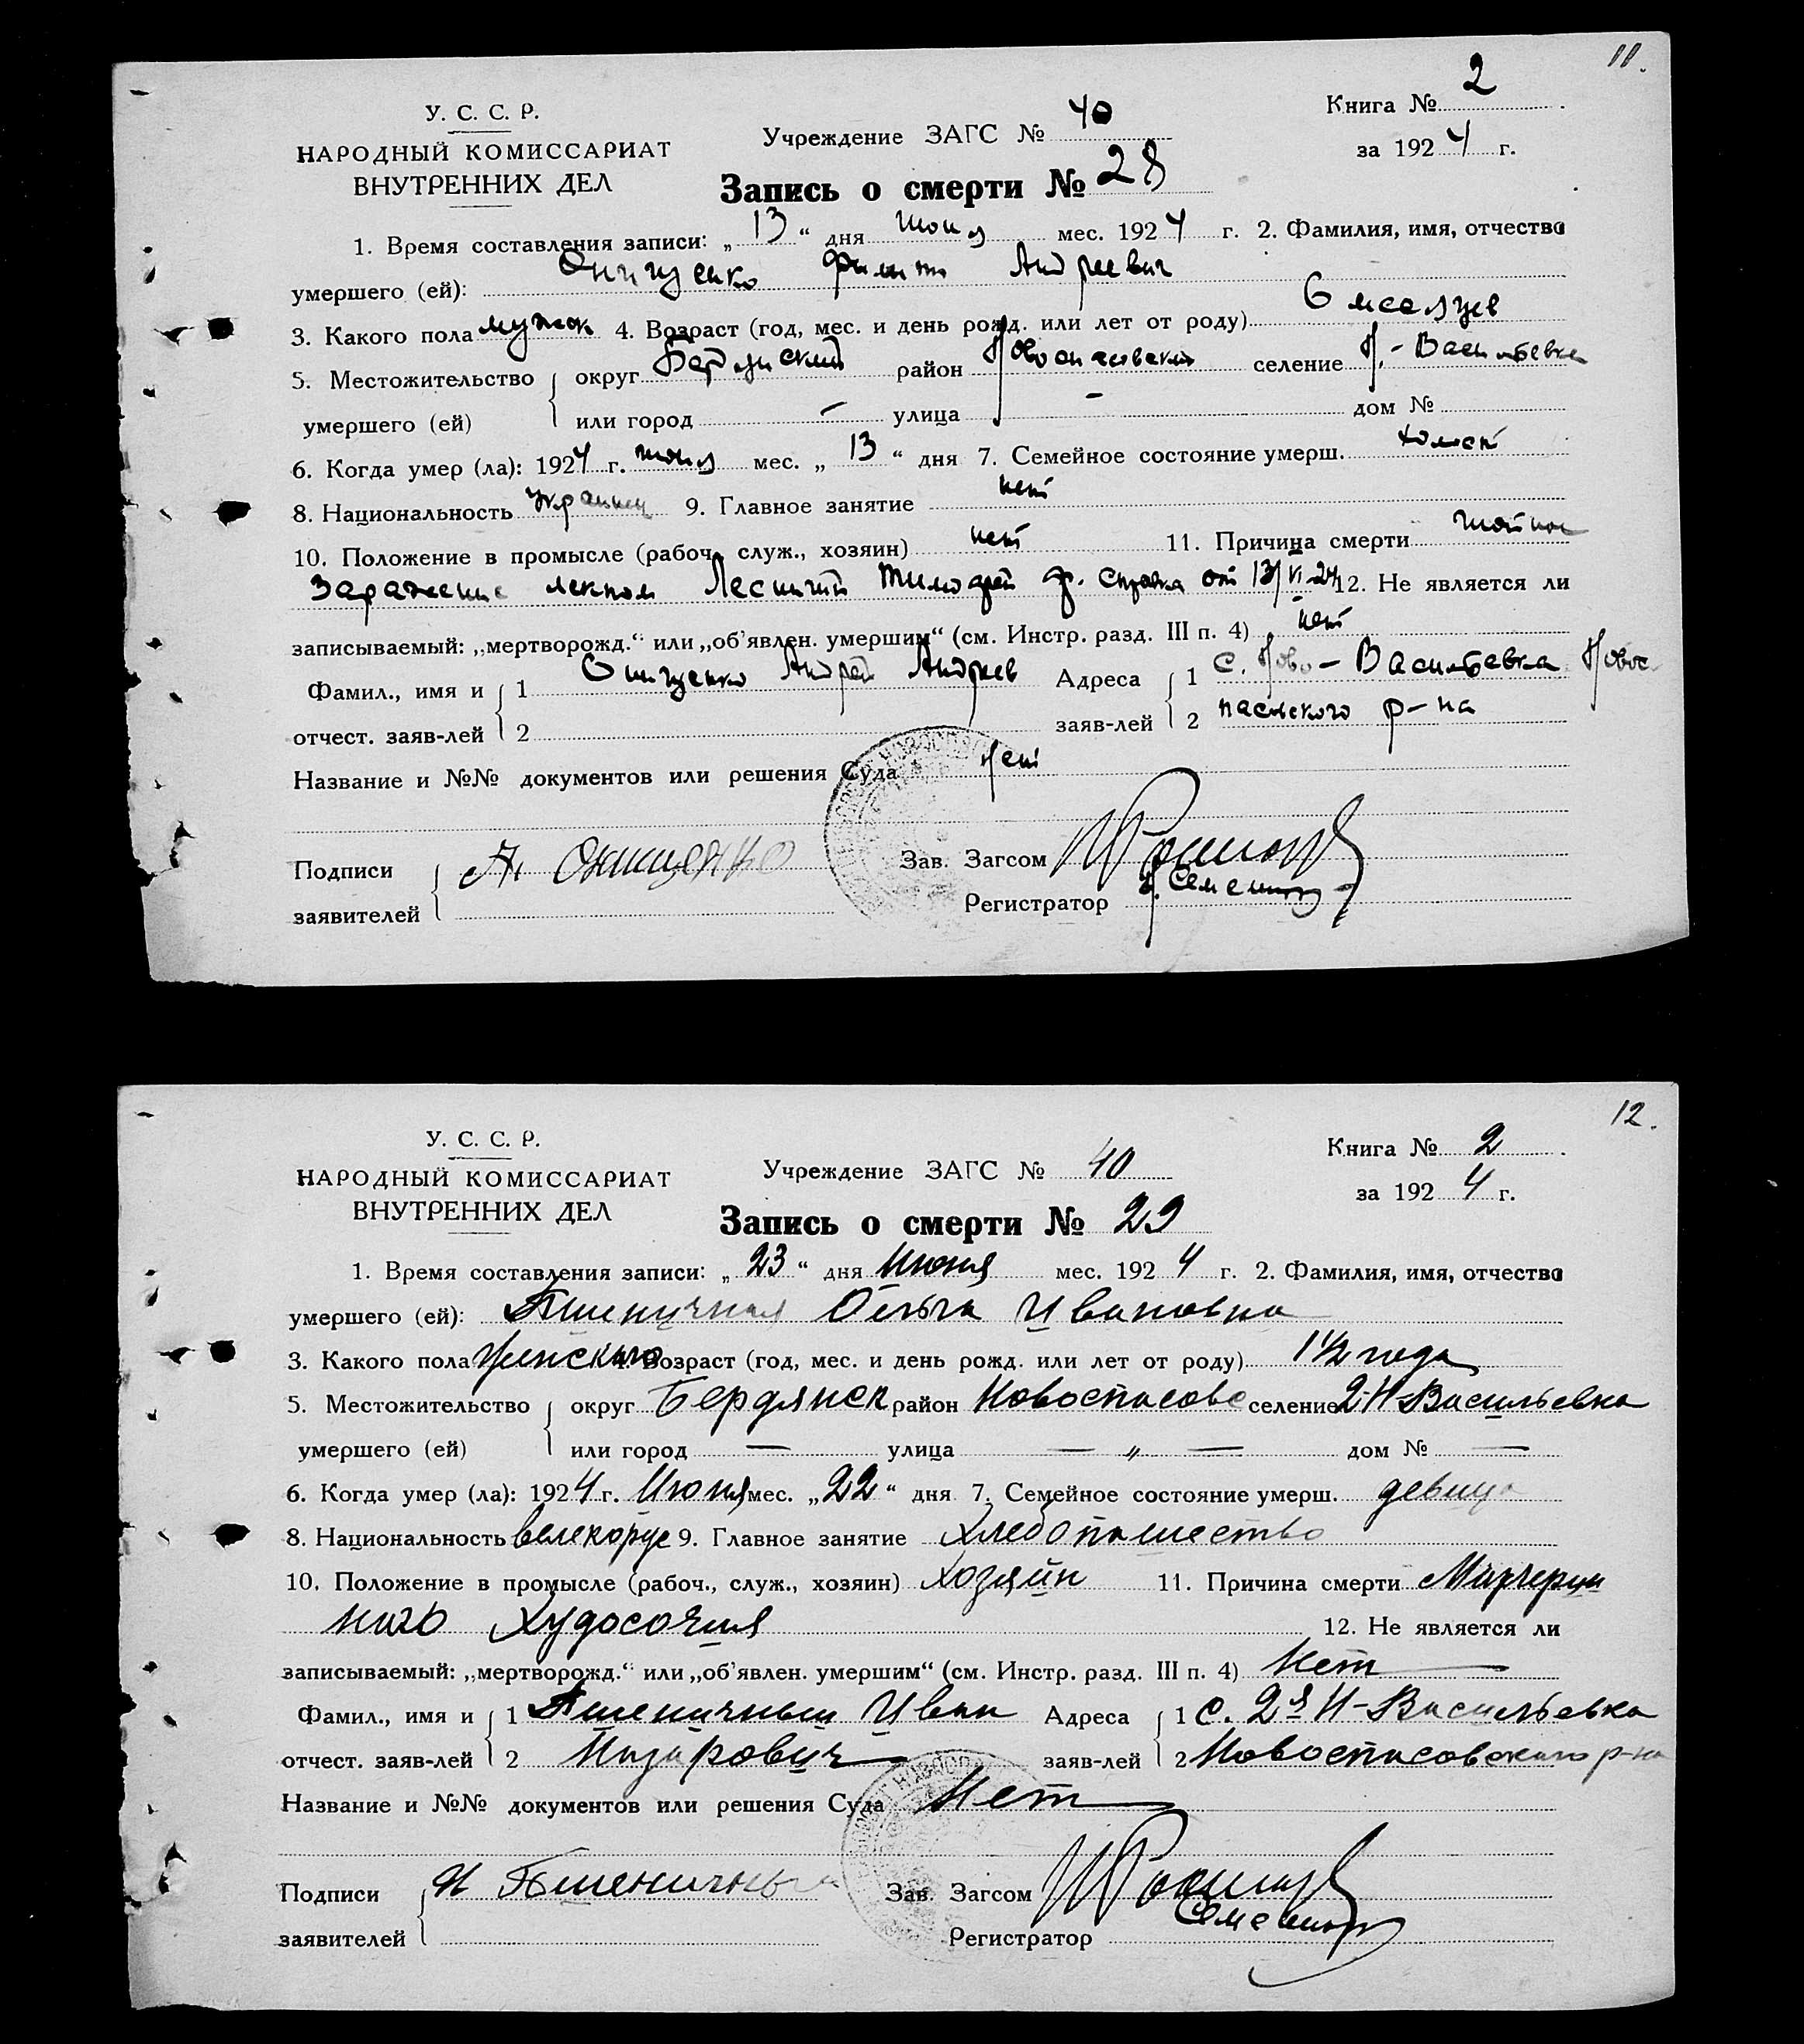 11.
У. С. С. Р.
НАРОДНЫЙ КОМИССАРИАТ
ВНУТРЕННИХ ДЕЛ
Учреждение ЗАГС № 40
Книга № 2
за 1924 г.
Запись о смерти № 28
1. Время составления записи: „13“ дня июня мес. 1924 г. 2. Фамилия, имя, отчество
умершего (ей): Онищенко Филипп Андреевич
3. Какого пола мужск 4. Возраст (год, мес. и день рожд. или лет от роду) 6 месяцев
5. Местожительство округ Бердянский район Новоспасовский селение Н.-Васильевка
умершего (ей) или город — улица — дом №
6. Когда умер (ла): 1924 г. июня мес. „13“ дня 7. Семейное состояние умерш. холост
8. Национальность украинец 9. Главное занятие нет
10. Положение в промысле (рабоч., служ., хозяин) нет 11. Причина смерти
Заражение справка от 13/VI-24 12. Не является ли
записываемый: „мертворожд.“ или „об'явлен. умершим“ (см. Инстр. разд. III п. 4) нет
Фамил., имя и 1 Онищенко Андрей Андреев Адреса 1 с. Ново-Васильевка Новос
отчест. заяв-лей 2 заяв-лей 2 пасовского р-на
Название и №№ документов или решения Суда Нет
Подписи А. Онищенко Зав. Загсом
заявителей Регистратор
12.
У. С. С. Р.
НАРОДНЫЙ КОМИССАРИАТ
ВНУТРЕННИХ ДЕЛ
Учреждение ЗАГС № 40
Книга № 2
за 1924 г.
Запись о смерти № 29
1. Время составления записи: „23“ дня Июня мес. 1924 г. 2. Фамилия, имя, отчество
умершего (ей): Пшеничная Ольга Ивановна
3. Какого пола Женского 4. Возраст (год, мес. и день рожд. или лет от роду) 1 1/2 года
5. Местожительство округ Бердянск район Новоспасовс селение 2-Н-Васильевка
умершего (ей) или город — улица — „ — дом № —
6. Когда умер (ла): 1924 г. Июня мес. „22“ дня 7. Семейное состояние умерш. девица
8. Национальность велекорус 9. Главное занятие Хлебопашество
10. Положение в промысле (рабоч., служ., хозяин) Хозяин 11. Причина смерти
Худосочия 12. Не является ли
записываемый: „мертворожд.“ или „об'явлен. умершим“ (см. Инстр. разд. III п. 4) Нет
Фамил., имя и 1 Пшеничный Иван Адреса 1 с. 2я Н-Васильевка
отчест. заяв-лей 2 Назарович заяв-лей 2 Новоспасовского р-на
Название и №№ документов или решения Суда Нет
Подписи И Пшеничный Зав. Загсом
заявителей Регистратор